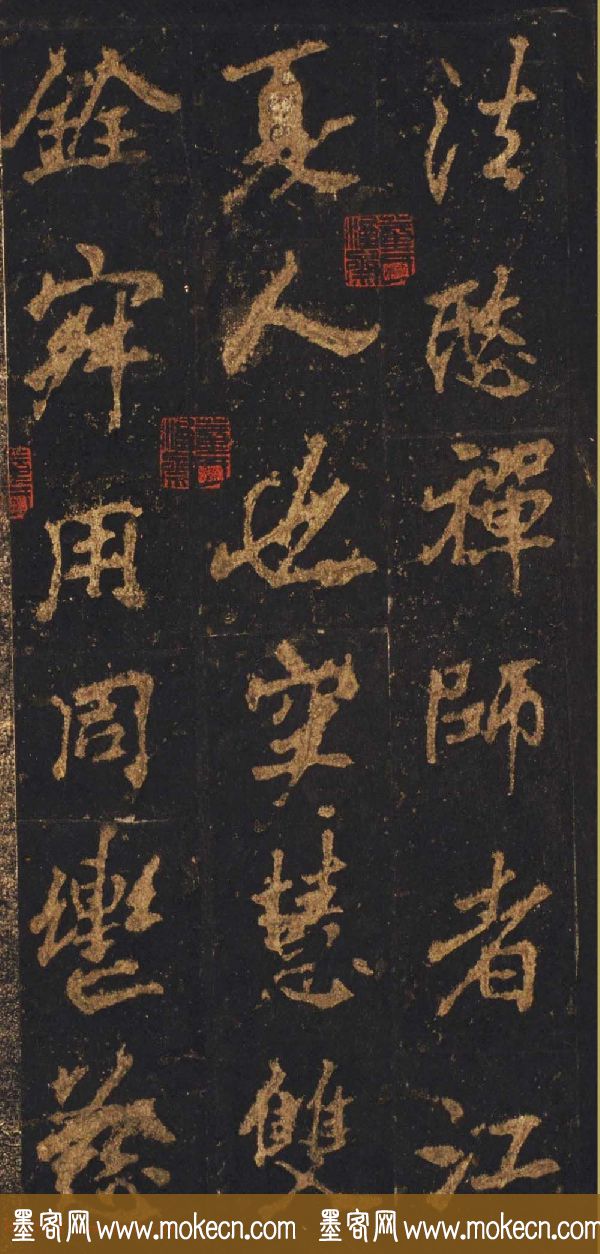 法愍禪師者江
夏人也実慧雙
銓寂用同轡慈
墨客网 www.mokecn.com 墨客网 www.mokecn.com